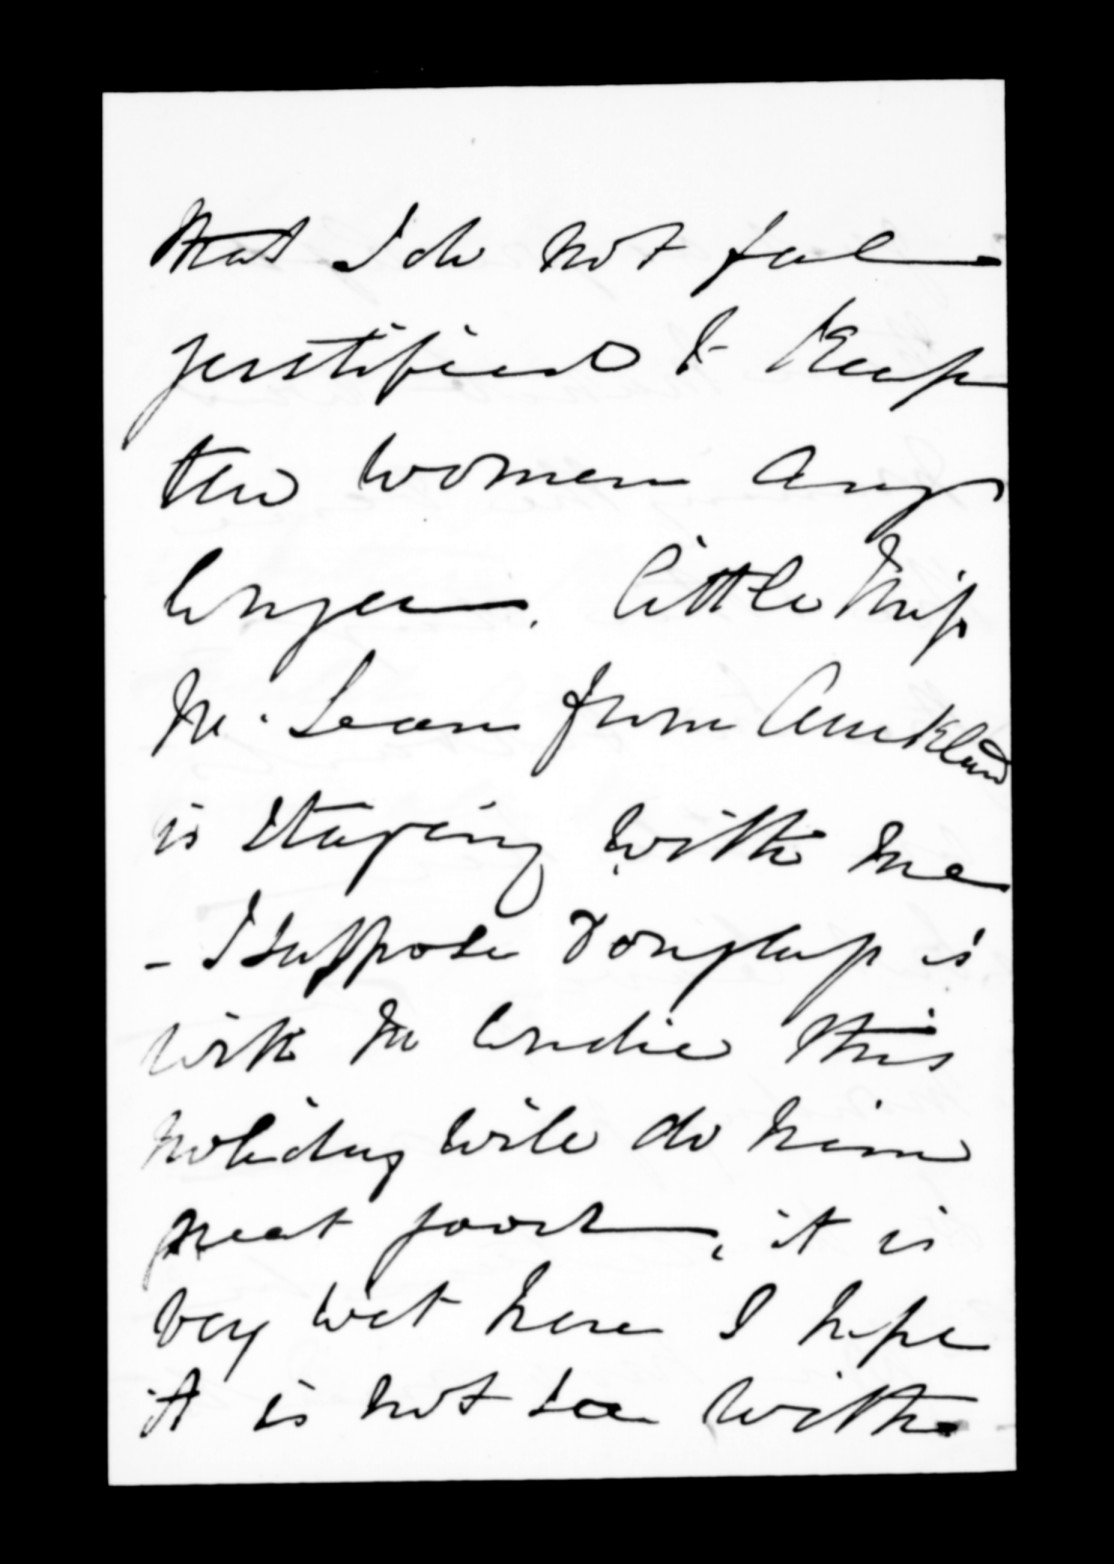 that I do not feel
justified to keep
the women any
longer. little Miss
McLean from Auckland
is staying with me
- I suppose Douglass is
with Mr this
holiday will do him
great good, it is
very wet here I hope
it is not so with